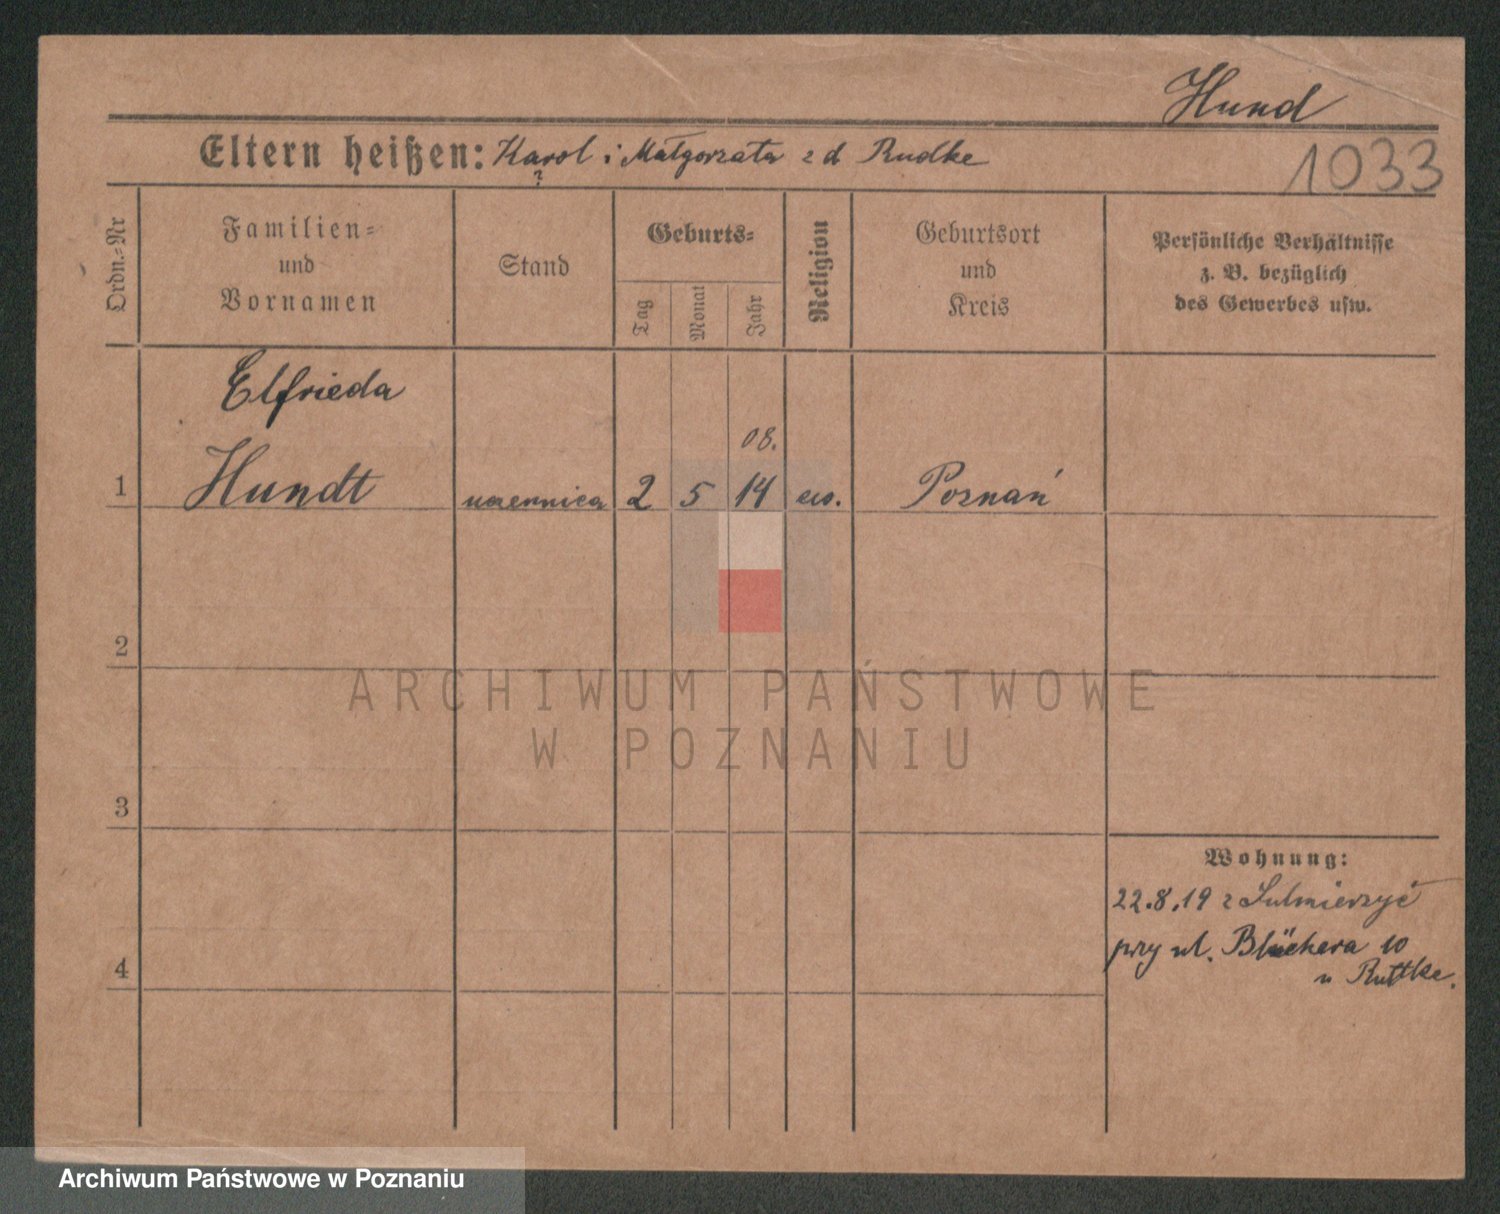 Hund
Eltern heißen: Karol i Małgorzata z d Rudke
?
1033
Ordn.-Nr
Familien-
und
Vornamen
Stand
Geburts-
Tag
Monat
Jahr
Religion
Geburtsort
und
Kreis
Persönliche Verhältnisse
z. B. bezüglich
des Gewerbes usw.
Elfrieda
08.
1 Hundt uczennica 2 5 14 ew. Poznań
2
3
4
Wohnung:
22.8.19 z Sulmierzyć
przy ul. Blüchera 10
u Ruttke.
ARCHIWUM PAŃSTWOWE
W POZNANIU
Archiwum Państwowe w Poznaniu